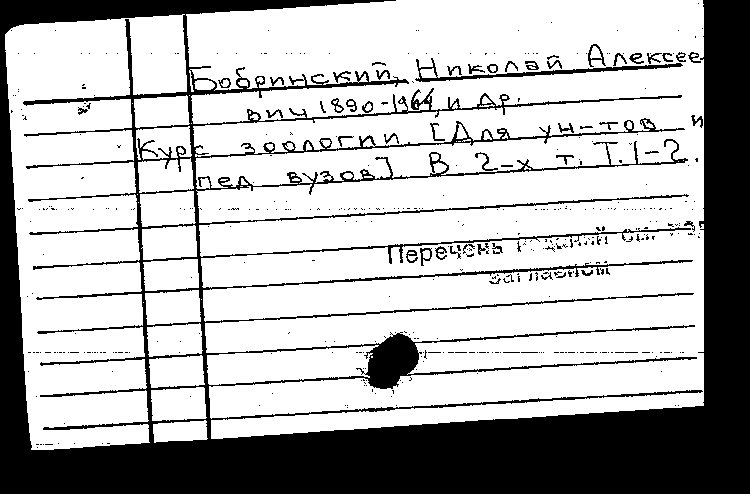 Бобринский, Николай Алексее
вич, 1890-1964, и др.
Курс зоологии. [Для ун-тов и
пед вузов]. В 2-х т. Т.1-2.
Перечень изданий см. на
заглавном